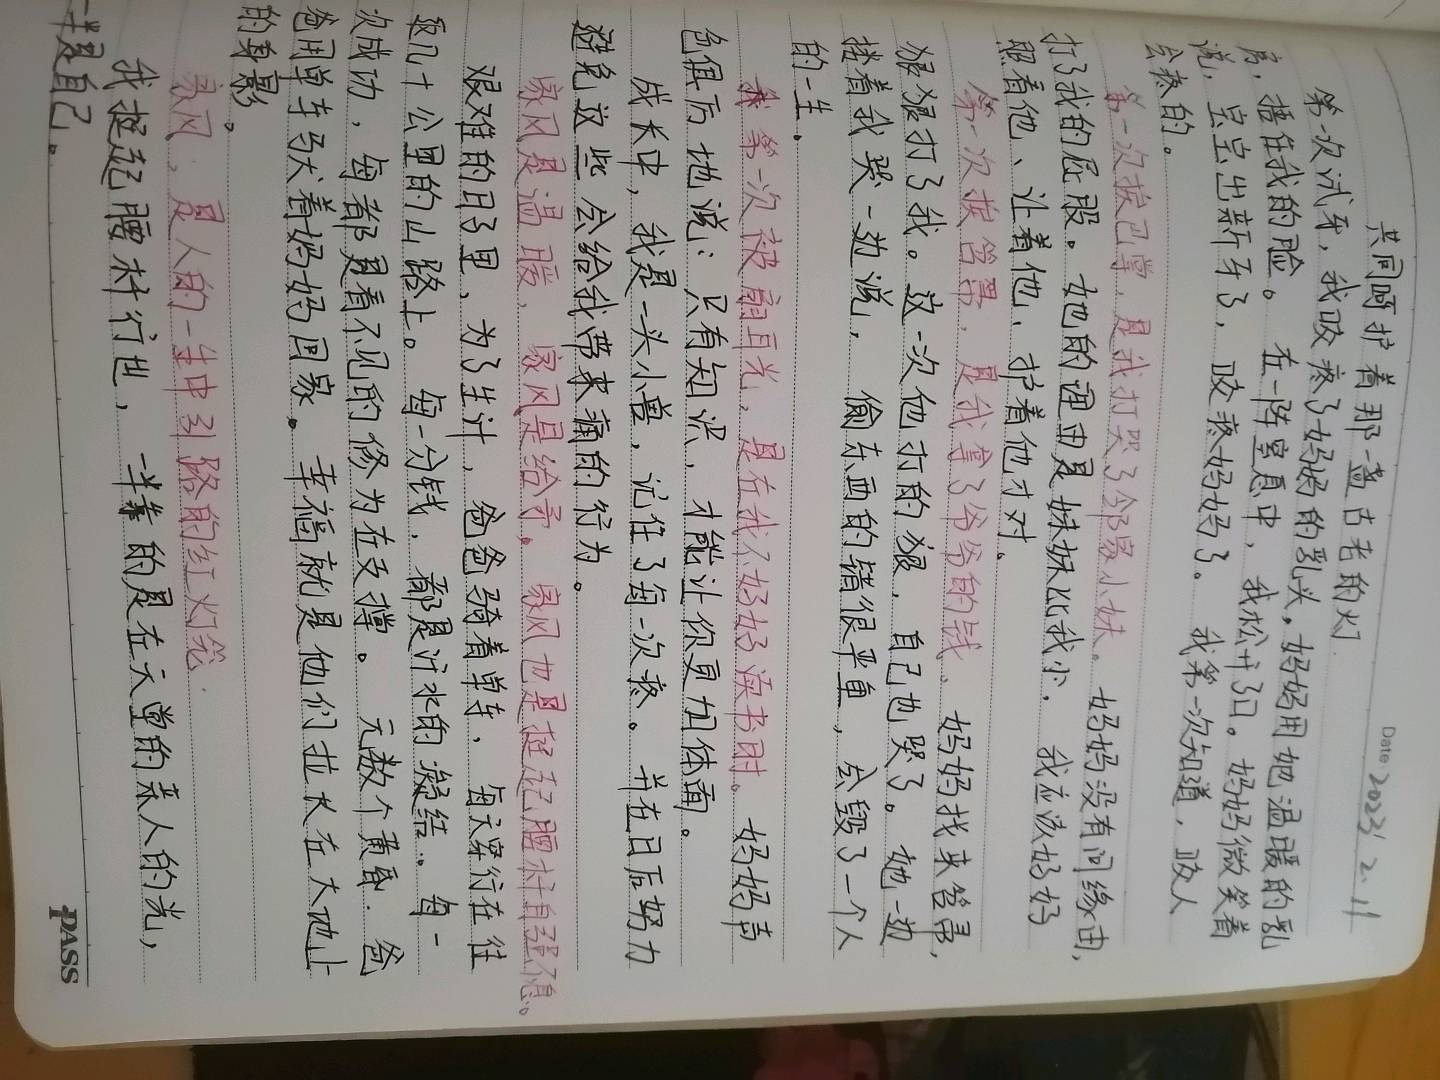 Date 2023/2.11
共同呵护着那一盏古老的灯
第一次试牙，我咬疼了妈妈的乳头。妈妈用她温暖的乳
房，捂住我的脸。在一阵窒息中，我松开了口。妈妈微笑着
说，宝宝出新牙了，咬疼妈妈了。我第一次知道，咬人
会疼的。
第一次挨巴掌，是我打哭了邻家小妹。妈妈没有问缘由，
打了我的屁股。她的理由是妹妹比我小，我应该好好
照着他、让着他、护着他才对。
第一次挨笤帚，是我拿了爷爷的钱。妈妈找来笤帚，
狠狠打了我。这一次他打的狠，自己也哭了。她一边
搂着我哭一边说，偷东西的错很严重，会毁了一个人
的一生。
第一次被扇耳光，是在我不好好读书时。妈妈声
色俱厉地说：只有知识，才能让你更加体面。
成长中，我是一头小兽，记住了每一次疼。并在日后努力
避免这些会给我带来痛的行为。
家风是温暖，家风是给予。家风也是挺起腰杆自强不息。
艰难的日子里，为了生计，爸爸骑着单车，每天穿行在往
返几十公里的山路上。每一分钱，都是汗水的凝结。每一
次成功，每都是看不见的修为在支撑。无数个黄昏，爸
爸用单车驮着妈妈回家。幸福就是他们拉长在大地上
的身影。
家风，是人的一生中引路的红灯笼.
我挺起腰杆行世，一半靠的是在天堂的亲人的光，
一半是自己。
PASS